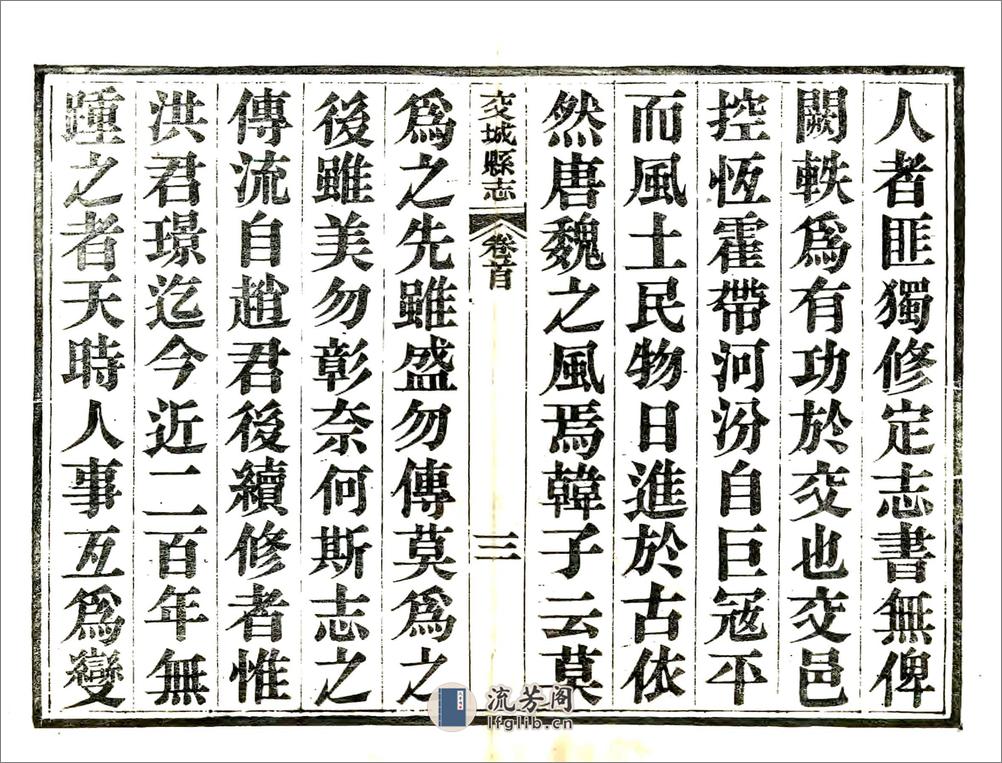 人者匪獨修定志書無俾
闕軼爲有功於交也交邑
控恆霍帶河汾自巨寇平
而風土民物日進於古依
然唐魏之風焉韓子云莫
交城縣志 卷首 三
爲之先雖盛勿傳莫爲之
後雖美勿彰奈何斯志之
傳流自趙君後續修者惟
洪君璟迄今近二百年無
踵之者天時人事互爲變
流芳阁
lfglib.cn